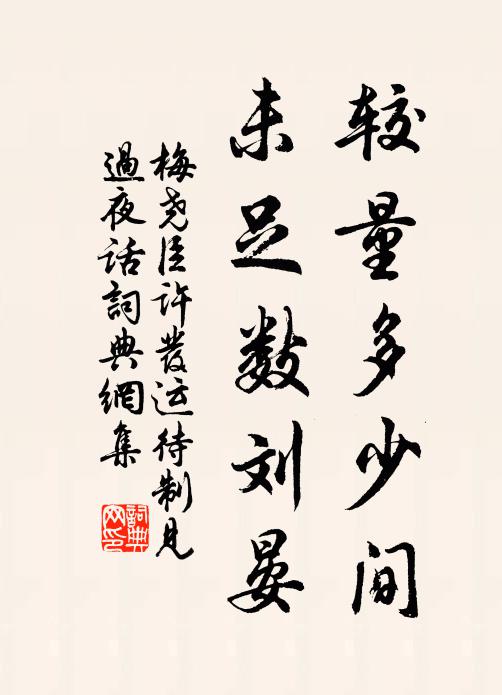 较量多少间
未足数刘晏
梅尧臣许發运待制見
過夜话詞典網集
詞典
网印